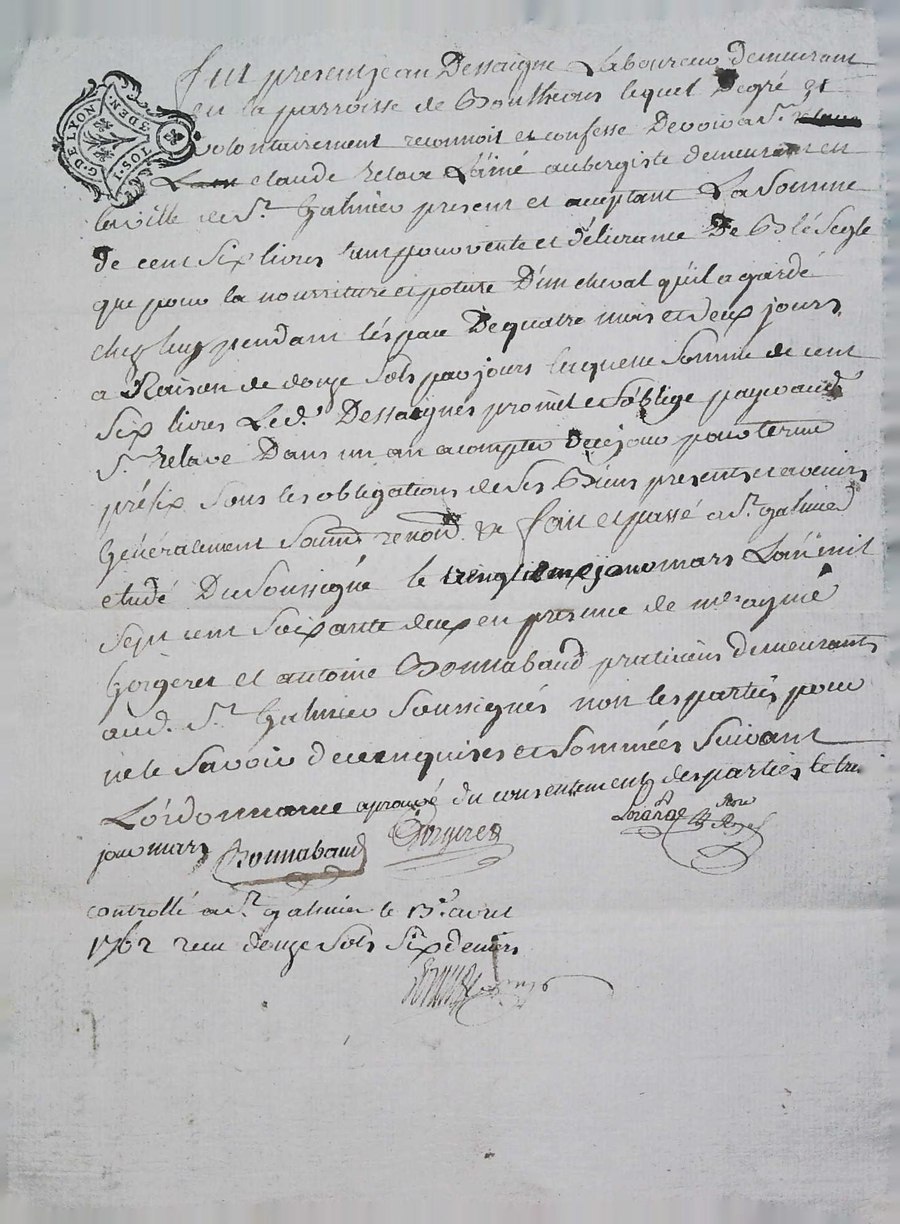 G. DE LYON
1. SOL 3 DEN.
fut present jean Dessaigne Laboureur demeurant
en la parroisse de Bouthéons lequel Degré et
volontairement reconnoit et confesse Devoir a Sr.
claude relave L'ainé aubergiste demeurant en
la ville de St. Galmier present et aceptant La Somme
de cent Six livres tant pour vente et délivrance De Blé Segle
que pour la nourriture et poture D'un cheval qu'il a gardé
chez luy pendant léspace De quatre mois et deux jours
a Raison de douze Sols par jours laquelle Somme de cent
Six livres Led. Dessaignes promet et s'oblige payer aud.
Sr. relave Dans un an a compter de ce jour pour terme
préfix Sous les obligations de Ses Biens presents et avenirs
Généralement Soumd. renond. & fait et passé a St. galmier
etude Du Soussigné le jour mars L'an mil
Sept cent Soixante deux en presence de me aymé
Gorgeret et antoine Bonnabaud praticiens demeurants
aud. St. Galmier Soussignés non les parties pour
ne le Savoir de ce enquises et Sommées Suivant
L'ordonnance aprouvé du consentement des parties le
jour mars Bonnabaud Gorgeret
controllé a St. galmier le 13e. avril
1762 reçu douze Sols Six deniers